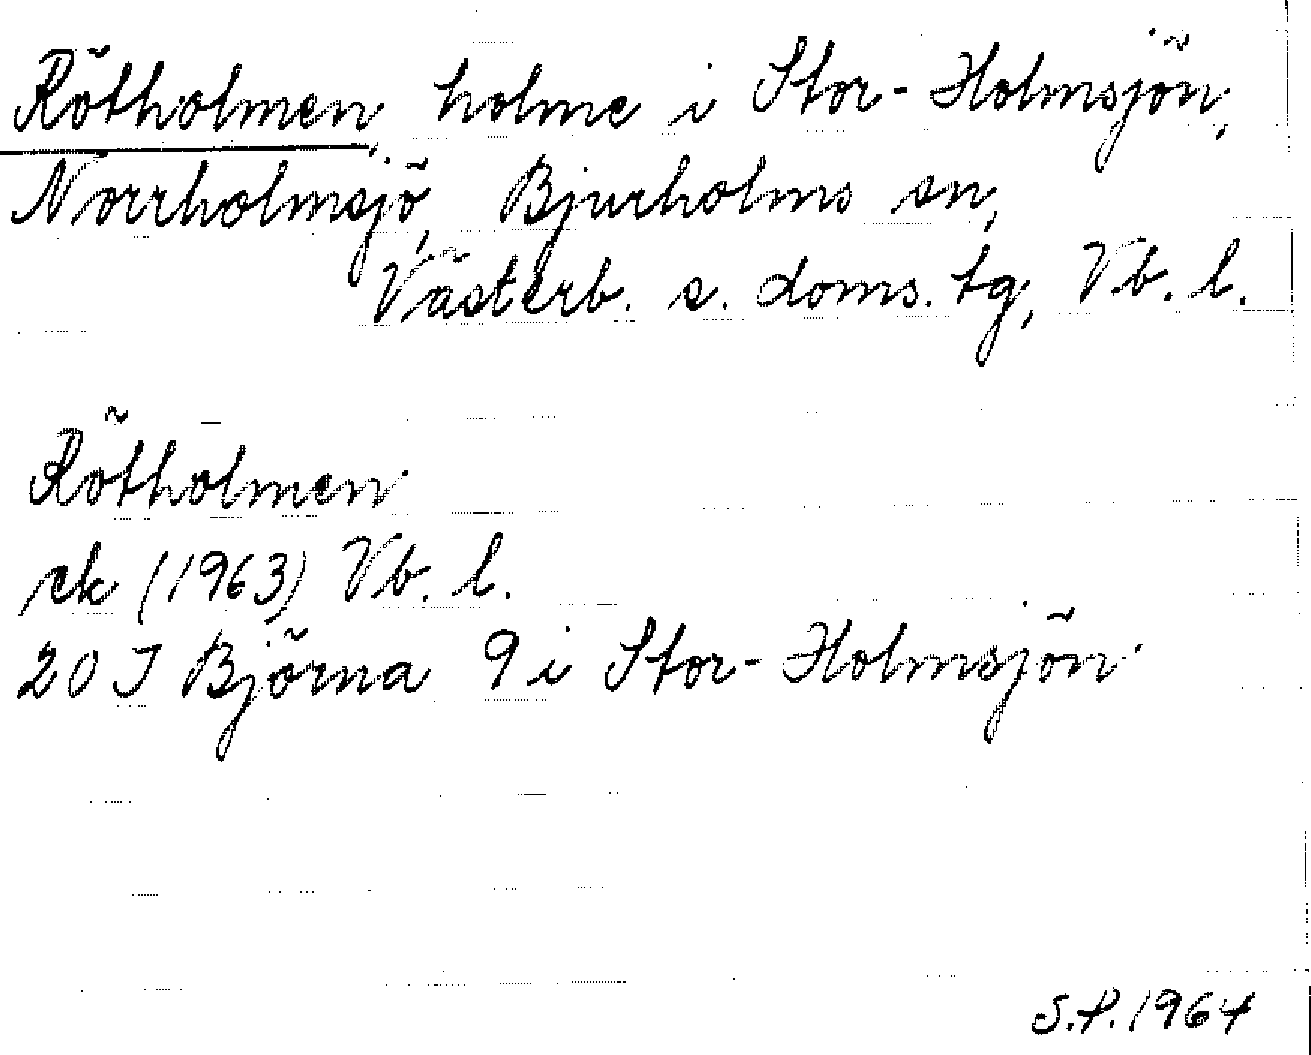 Rötholmen, holme i Stor-Holmsjön,
Norrholmsjö, Bjurholms sn,
Västerb. s. doms. tg, Vb. l.
Rötholmen
ek (1963) Vb. l.
20 J Björna 9 i Stor-Holmsjön
S.P. 1964